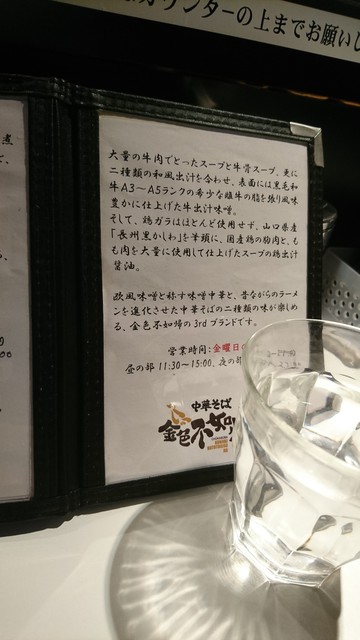 カウンターの上までお願いし
大量の牛肉でとったスープと牛骨スープ、更に
二種類の和風出汁を合わせ、表面には黒毛和
牛A3～A5ランクの希少な雌牛の脂を張り風味
豊かに仕上げた牛出汁味噌。
そして、鶏ガラはほとんど使用せず、山口県産
「長州黒かしわ」を筆頭に、国産鶏の胸肉と、も
も肉を大量に使用して仕上げたスープの鶏出汁
醤油。
欧風味噌と称す味噌中華と、昔ながらのラーメ
ンを進化させた中華そばの二種類の味が楽しめ
る、金色不如帰の3rdブランドです。
営業時間:金曜日
昼の部 11:30～15:00、夜の部
中華そば
金色不如
煮
て、